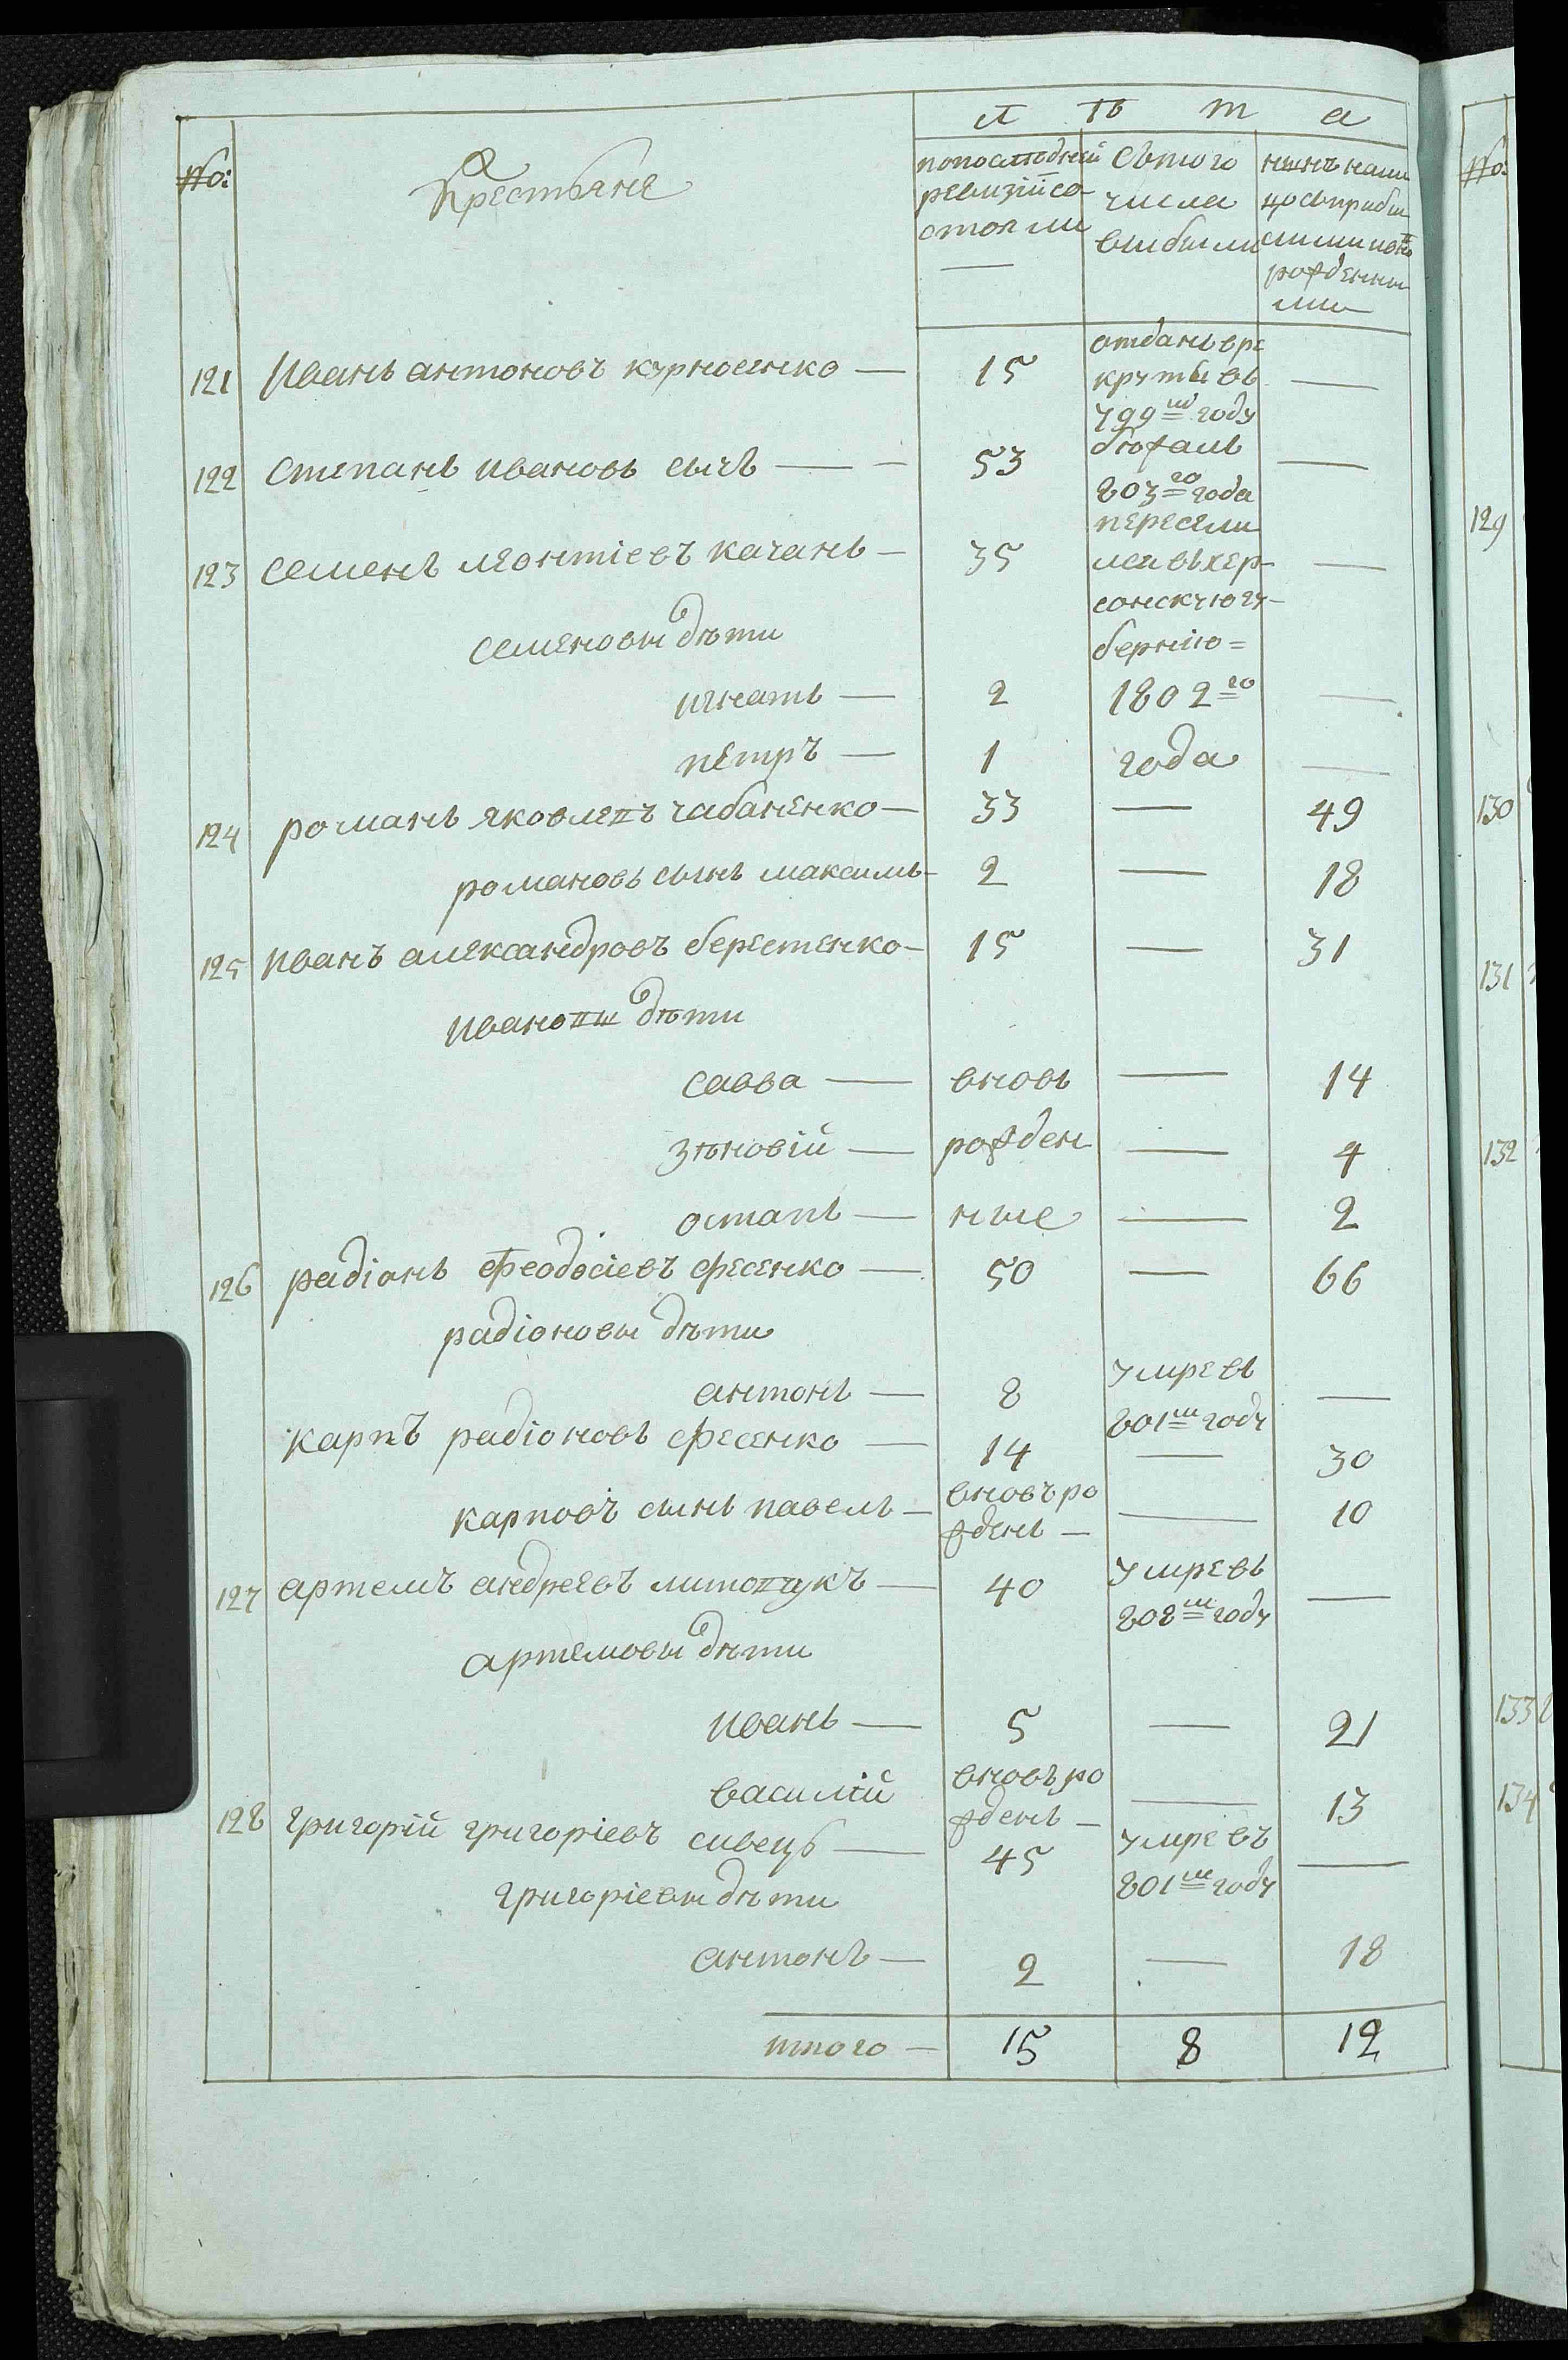 лѣта
№:
Крестьяне
попоследней ревизіи состояли
Съ того числа выбыли
нынѣ налицо съприбылыми и новорожденными
121 Иванъ антоновъ курносенко — 15 отданъ врекруты въ 799м году —
122 Степанъ Ивановъ сычъ — 53 бежалъ 803го года —
123 Семенъ леонтіевъ качанъ — 35 переселился въ херсонскую губернію = —
семеновы дѣти
игнатъ — 2 1802го —
петръ — 1 года —
124 романъ яковлевъ чабаненко — 33 — 49
романовъ сынъ максимъ — 2 — 18
125 Иванъ александровъ берестенко — 15 — 31
Ивановы дѣти
савва — вновь — 14
зѣновій — рожден — 4
остапъ — ные — 2
126 радіонъ феодосіевъ фесенко — 50 — 66
радіоновы дѣти
антонъ — 8 умре въ 801м году —
карпъ радіоновъ фесенко — 14 — 30
карповъ сынъ павелъ — вновъ рожденъ — — 10
127 артемъ андреевъ литовчукъ — 40 умре въ 808м году —
артемовы дѣти
Иванъ — 5 — 21
василій вновъ рожденъ — — 13
128 григорій григоріевъ сивецъ — 45 умре въ 801м году —
григоріевы дѣти
антонъ — 2 — 18
итого — 15 8 12
№:
129
130
131
132
133
134